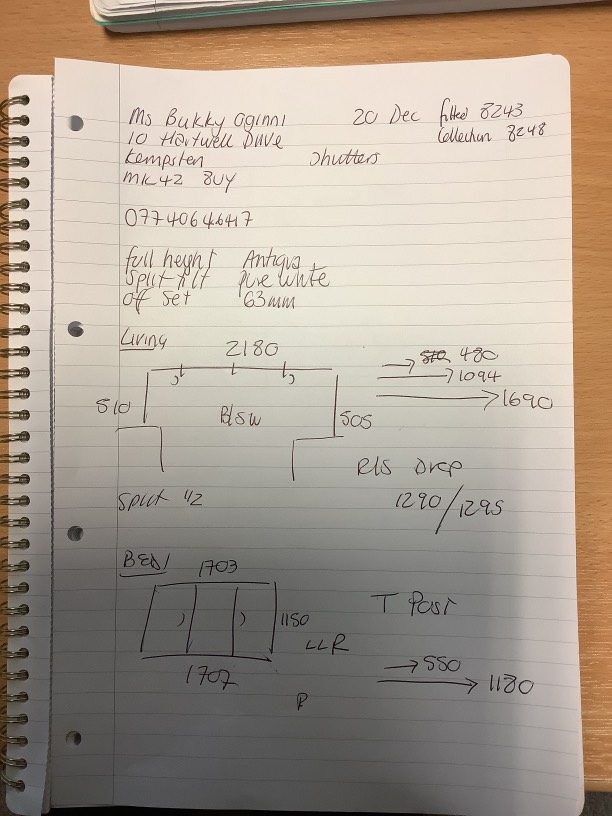 Ms Bukky Oginni 20 Dec fitted 8243
10 Hartwell Drive Collection 8248
Kempsten Shutters
MK42 8UY
07740646417
full height Antigua
split tilt pure white
off set 63mm
Living
2180
480
1094
1690
510 B/SW 505
R/S Drop
Split 1/2 1290/1295
BED1
1703
T Post
1150
LLR
550
1707 1180
P